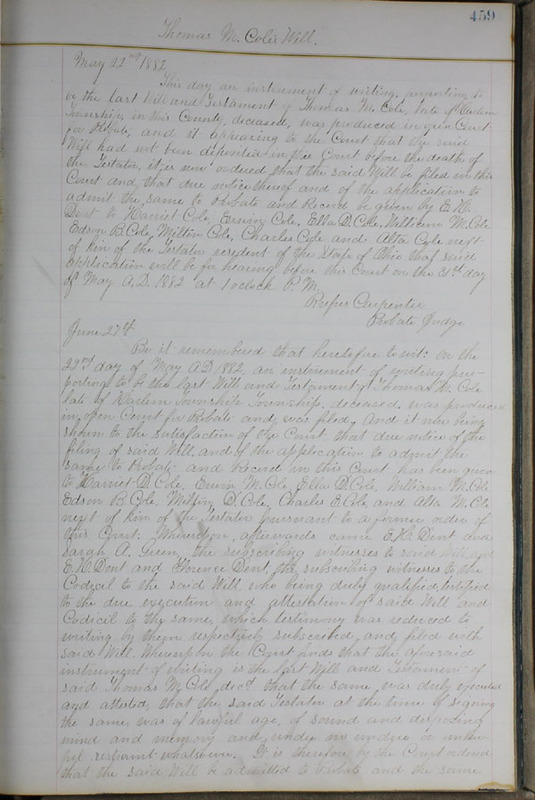 459
Thomas M. Cole's Will.
May 22nd 1882
This day an instrument of writing, purporting to
be the last Will and Testament of Thomas M. Cole, late of Harlem
Township, in this County, deceased, was produced in open Court
for Probate, and it appearing to the Court that the said
Will had not been deposited in this Court before the death of
the Testator, it is now ordered that the said Will be filed in this
Court and that due notice thereof and of the application to
admit the same to Probate and Record be given by E. K.
Dent to Harriet Cole, Erwin Cole, Ella D. Cole, William M. Cole
Edson B. Cole, Milton Cole, Charles Cole and Alta Cole next
of kin of the Testator resident of the State of Ohio that said
application will be for hearing before this Court on the 31st day
of May A.D. 1882 at 1 oclock P.M.
Rufus Carpenter
Probate Judge
June 27th
Be it remembered that heretofore to wit: on the
22nd day of May A.D. 1882, an instrument of writing pur-
porting to be the last Will and Testament of Thomas M. Cole
late of Harlem Township, deceased, was produced
in open Court for Probate and was filed, And it now being
shown to the satisfaction of the Court, that due notice of the
filing of said Will, and of the application to admit the
same to Probate and Record in this Court has been given
to Harriet D. Cole, Erwin M. Cole, Ella D. Cole, William M. Cole
Edson B. Cole, Milton D. Cole, Charles E. Cole and Alta M. Cole
next of kin of the Testator pursuant to a former order of
this Court. Whereupon, afterwards came E. K. Dent and
Sarah A. Green, the subscribing witnesses to said Will, and
E. K. Dent and Florence Dent, the subscribing witnesses to the
Codicil to the said Will, who being duly qualified, testified
to the due execution and attestation of said Will and
Codicil to the same, which testimony was reduced to
writing by them respectively subscribed, and filed with
said Will. Whereupon the Court finds that the aforesaid
instrument of writing is the last Will and Testament of
said Thomas M. Cole, decd. that the same, was duly executed
and attested, that the said Testator at the time of signing
the same, was of lawful age, of sound and disposing
mind and memory and, under no undue or unlaw-
ful restraint whatsoever. It is therefore by the Court ordered
that the said Will be admitted to Probate and the same